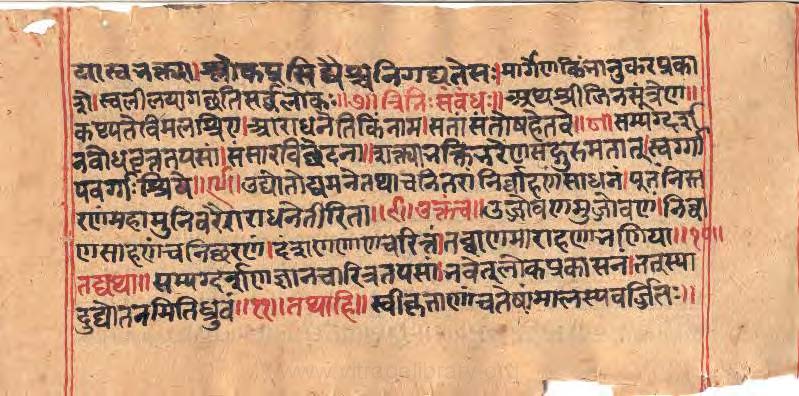 या स्वशक्त्या। श्लोकप्रसिद्ध्यैश्च निगद्यते सः। मार्गेण किं भानुकरप्रका
शे। स्वलीलया गच्छति सर्वलोकः॥७॥ त्रिभिः संबंधः॥ अथ श्रीजिनसूत्रेण॥
कथ्यते विमलश्रिए। आराधनेति किं नाम। सतां संतोषहेतवे॥८॥ सम्यग्दर्श
नबोधवृत्ततपसां। संसारविछेदना। शक्त्या भक्तिभरेण सद्गुरुमतात्। स्वर्ग्गा
पवर्गाश्रिये॥९॥ उद्योतोद्यमने तथा च नितरां निर्वाहणं साधनं। पूतैर्निस्त
रणं महामुनिवरैराराधनेतीरिता॥९॥ उक्तंच॥ उज्जोवणमुज्जोवण। निव्वा
णसाहणं च निछरणं। दंसणणाणचरित्तं। तव्वाणमाराहणा भणिया॥१०॥
तद्यथा॥ सम्यग्दर्शनज्ञानचारित्रतपसां। भवेत् लोकप्रकासनं। तत् स्या
दुद्योतनमिति ध्रुवं॥११॥ तथाहि॥ स्वीकृतानां च तेषां मालस्यवर्जितिः॥
www.vitragelibrary.org